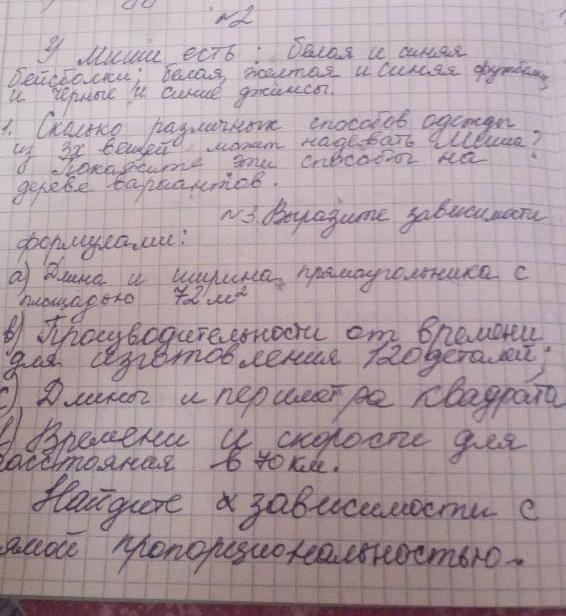 №2
У Миши есть: белая и синяя
бейсболки; белая, желтая и синяя футболки,
и черные и синие джинсы.
1. Сколько различных способов одежды
из 3х вещей может надевать Миша?
Покажите эти способы на
дереве вариантов.
№3. Выразите зависимости
формулами:
а) Длина и ширина прямоугольника с
площадью 72 м²
в) Производительности от времени
для изготовления 120 деталей;
с) Длины и периметра квадрата
Времени и скорости для
расстояная в 70 км.
Найдите зависимости с
ямой пропорциональностью.